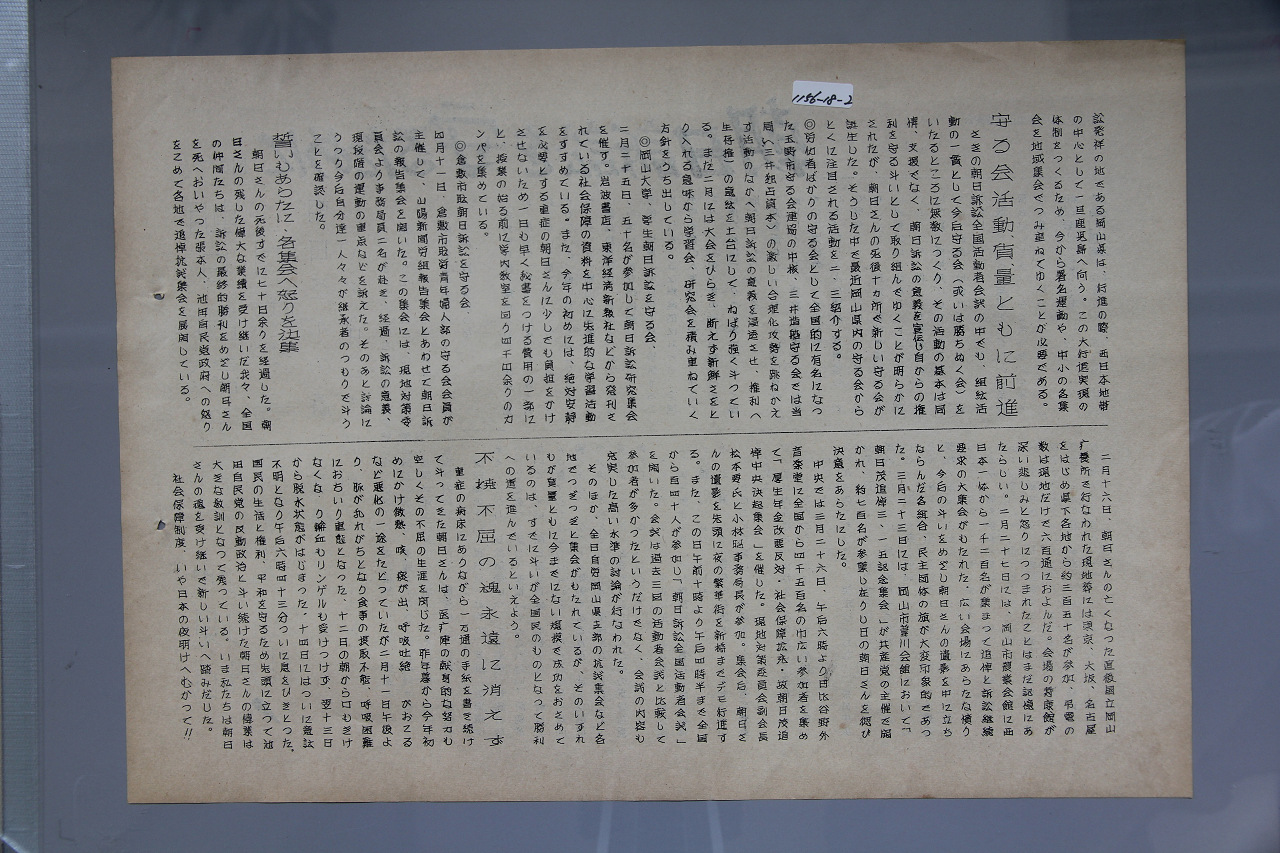 1156-18-2
訟発祥の地である岡山県は、行進の際、西日本地帯
の中心として一旦鹿児島へ向う。この大行進実現の
体制をつくるため、今から署名運動や、中小の各集
会を地域集会でつみ重ねてゆくことが必要である。
守る会活動、質量ともに前進
さきの朝日訴訟全国活動者会議の中でも、組織活
動の一貫として今后守る会(或いは勝ちぬく会)を
いたるところに無数につくり、その活動の基本は同
情、支援でなく、朝日訴訟の意義を宣伝し自からの権
利を守る斗いとして取り組んでゆくことが明らかに
されたが、朝日さんの死後十カ所ぐ新しい守る会が
誕生した。そうした中で最近岡山県内の守る会から
とくに注目される活動を二、三紹介する。
◎労仂者ばかりの守る会として全国的に有名になつ
た玉野市守る会連絡の中核、三井造船守る会では当
局(三井独占資本)の激しい合理化攻勢を跳ねかえ
す活動のなかへ朝日訴訟の意義を浸透させ、権利(
生存権)の意義を土台にして、ねばり強く斗つてい
る。また二月には大会をひらき、断えず新鮮さをと
り入れる意味から学習会、研究会を積み重ねていく
方針をうち出している。
◎岡山大学、学生朝日訴訟を守る会、
二月二十五日、五十名が参加して朝日訴訟研究集会
を催す。岩波書店、東洋経済新報社などから発刊さ
れている社会保障の資料を中心に先進的な学習活動
をすすめている。また、今年の初めには、絶対安静
を必要とする重症の朝日さんに少しでも負担をかけ
させないため一日も早く秘書をつける費用の一部に
と、授業の始る前に学内教室を回り四千円余りのカ
ンパを集めている。
◎倉敷市職朝日訴訟を守る会
四月十一日、倉敷市職労青年婦人部の守る会会員が
主催して、山陽新聞労組報告集会とあわせて朝日訴
訟の報告集会を開いた。この集会には、現地対策委
員会より事務局員二名が赴き、経過、訴訟の意義、
現段階の運動の重点などを訴えた。そのあと討論に
うつり今后自分達一人々々が継承者のつもりで斗う
ことを確認した。
誓いもあらたに、各集会へ怒りを決集
朝日さんの死後すでに七十日余りを経過した。朝
日さんの残した偉大な業績を受け継いだ我々、全国
の仲間たちは、訴訟の最終的勝利をめざし朝日さん
を死へおいやつた張本人、池田自民党政府への怒り
をこめて各地で追悼抗議集会を展開している。
二月十六日、朝日さんの亡くなつた直後国立岡山
療養所で行なわれた現地葬には東京、大阪、名古屋
をはじめ県下各地から約三百五十名が参加、弔電の
数は現地だけで六百通におよんだ。会場の青嵐館が
深い悲しみと怒りにつつまれたことはまだ記憶にあ
たらしい。二月二十七日には、岡山市農業会館に西
日本一体から一千二百名が集まつて追悼と訴訟継続
要求の大集会がもたれた。広い会場にあらたな憤り
と、今后の斗いをめざし朝日さんの遺影を中に立ち
ならんだ各組合、民主団体の旗が大変印象的であつ
た。三月二十三日には、岡山市蕃川会館において「
朝日茂追悼三・一五記念集会」が共産党の主催で開
かれ、約七百名が参集し在りし日の朝日さんを偲び
決意をあらたにした。
中央では三月二十六日、午后六時より日比谷野外
音楽堂に全国から四千五百名の巾広い参加者を集め
て「厚生年金改悪反対・社会保障拡充・故朝日茂追
悼中央決起集会」を催した。現地対策委員会副会長
松本寿氏と小林昭事務局長が参加。集会后、朝日さ
んの遺影を先頭に夜の繁華街を新橋までデモ行進す
る。また、この日午前十時より午后四時半まで全国
から百四十人が参加し「朝日訴訟全国活動者会議」
を開いた。会議は過去三回の活動者会議と比較して
参加者が多かつたというだけでなく、会議の内容も
充実した高い水準の討論が行なわれた。
そのほか、全日自労岡山県支部の抗議集会など各
地でつぎつぎと集会がもたれているが、そのいずれ
もが質量ともに今までにない規模で成功をおさめて
いるのは、すでに斗いが全国民のものとなつて勝利
への道を進んでいるといえよう。
不撓不屈の魂永遠に消えず
重症の病床にありながら一万通の手紙を書き続け
て斗つてきた朝日さんは、医療陣の献身的な努力も
空しくその不屈の生涯を閉じた。昨年暮から今年初
めにかけ微熱、咳、痰が出、呼吸吐絶 がおてる
など悪化の一途をたどつていたが二月十一日午後よ
り、脈が乱れがちとなり食事の摂取不能、呼吸困難
におちいり重態となつた。十二日の朝から口もきけ
なくなり輸血もリンゲルも受けつけず、翌十三日
から脱水状態がはじまつた。十四日にはついに意識
不明となり午后六時四十三分ついに息をひきとつた。
国民の生活と権利、平和を守るため先頭に立つて池
田自民党の反動政治と斗い続けた朝日さんの偉業は
大きな教訓となつて残つている。いま私たちは朝日
さんの魂を受け継いで新しい斗いへ踏みだした。
社会保障制度、いや日本の夜明けへむかつて!!